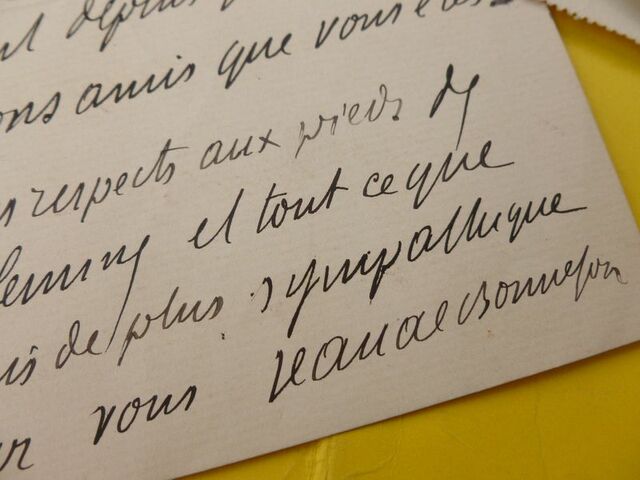 depuis
ons amis que vous êtes
respects aux pieds de
Fleming et tout ce que
de plus sympathique
vous Jean de Bonnefon